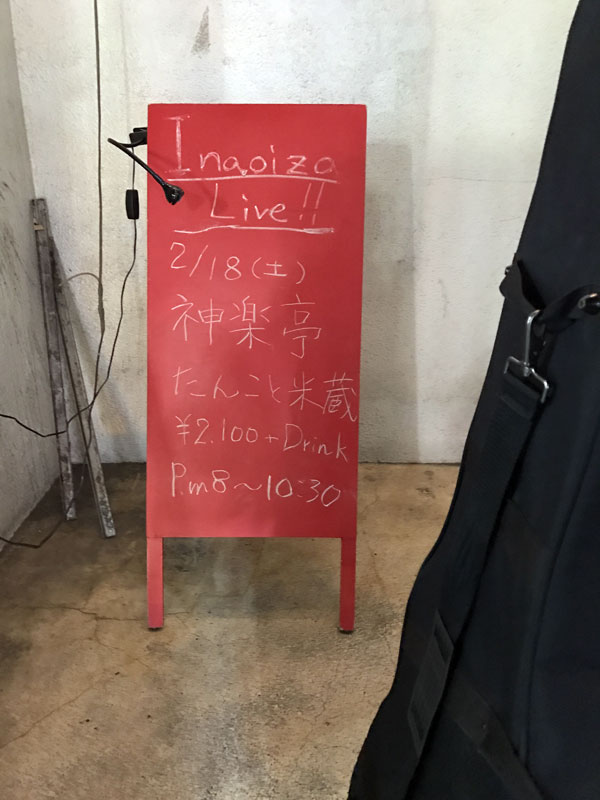 Inaoiza
Live!!
2/18(土)
神楽亭
たんこと米蔵
¥2.100+Drink
P.m8〜10:30